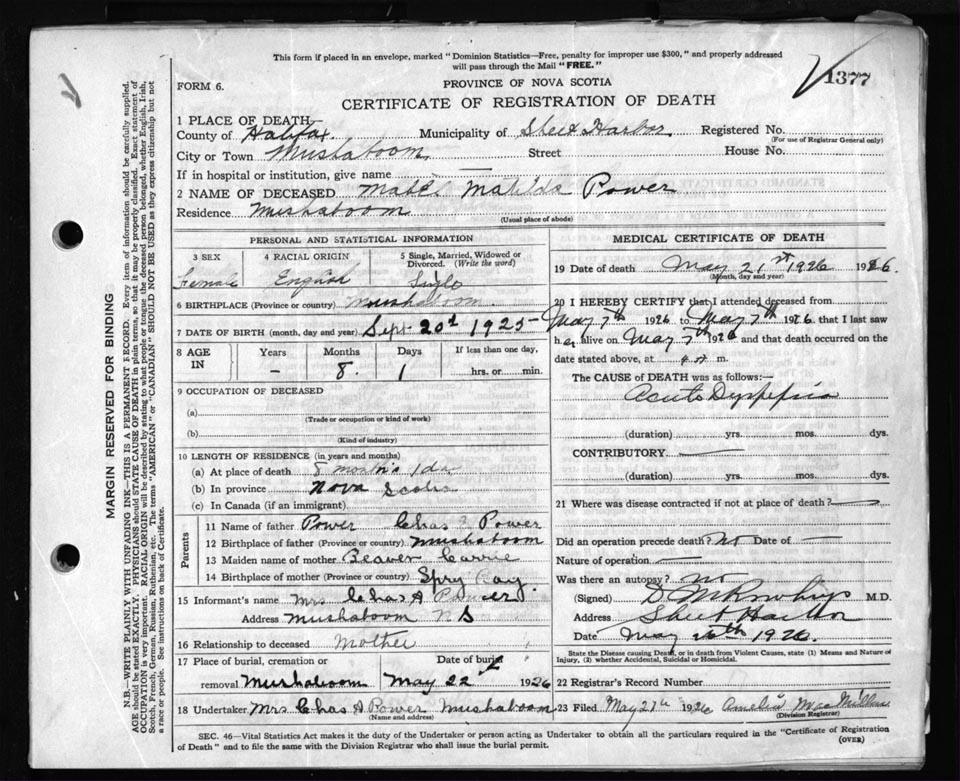 This form if placed in an envelope, marked "Dominion Statistics—Free, penalty for improper use $300," and properly addressed
will pass through the Mail "FREE."
1377
FORM 6.
PROVINCE OF NOVA SCOTIA
CERTIFICATE OF REGISTRATION OF DEATH
1 PLACE OF DEATH
County of Halifax Municipality of Sheet Harbor Registered No.
(For use of Registrar General only)
City or Town Mushaboom Street House No.
If in hospital or institution, give name
2 NAME OF DECEASED Mabel Matilda Power
Residence Mushaboom
(Usual place of abode)
PERSONAL AND STATISTICAL INFORMATION
3 SEX 4 RACIAL ORIGIN 5 Single, Married, Widowed or
Divorced. (Write the word)
Female English Single
6 BIRTHPLACE (Province or Country) Mushaboom
7 DATE OF BIRTH (month, day and year) Sept 20th 1925
8 AGE IN Years Months Days If less than one day,
– 8. 1 hrs. or min.
9 OCCUPATION OF DECEASED
(a)
(Trade or occupation or kind of work)
(b)
(Kind of industry)
10 LENGTH OF RESIDENCE (in years and months)
(a) At place of death 8 months 1 day
(b) In province Nova Scotia
(c) In Canada (if an immigrant)
Parents
11 Name of father Power Chas Power
12 Birthplace of father (Province or country) Mushaboom
13 Maiden name of mother Beaver Carrie
14 Birthplace of mother (Province or country) Spry Bay
15 Informant's name Mrs Chas A Power
Address Mushaboom N S
16 Relationship to deceased Mother
17 Place of burial, cremation or Date of burial
removal Mushaboom May 22 1926
18 Undertaker Mrs Chas A Power Mushaboom
(Name and address)
MEDICAL CERTIFICATE OF DEATH
19 Date of death May 21st 1926 1926.
(Month, day and year)
20 I HEREBY CERTIFY that I attended deceased from
May 7th 1926 to May 7th 1926 that I last saw
her alive on May 7th 1926 and that death occurred on the
date stated above, at m.
The CAUSE of DEATH was as follows:—
Acute Dyspepsia
(duration) yrs. mos. dys.
CONTRIBUTORY
(duration) yrs. mos. dys.
21 Where was disease contracted if not at place of death?
Did an operation precede death? No Date of —
Nature of operation —
Was there an autopsy? No
(Signed) M.D.
Address Sheet Harbor
Date May 1926.
State the Disease causing Death, or in death from Violent Causes, state (1) Means and Nature of
Injury, (2) whether Accidental, Suicidal or Homicidal.
22 Registrar's Record Number
23 Filed May 27th 1926 Amelia MacMillan
(Division Registrar)
SEC. 46—Vital Statistics Act makes it the duty of the Undertaker or person acting as Undertaker to obtain all the particulars required in the "Certificate of Registration
of Death" and to file the same with the Division Registrar who shall issue the burial permit.
(OVER)
MARGIN RESERVED FOR BINDING
N.B.—WRITE PLAINLY WITH UNFADING INK—THIS IS A PERMANENT RECORD. Every item of information should be carefully supplied.
AGE should be stated EXACTLY. PHYSICIANS should STATE CAUSE OF DEATH in plain terms, so that it may be properly classified. Exact statement of
OCCUPATION is very important. RACIAL ORIGIN will be described by stating to what people or tongue the deceased person belonged, whether English, Irish,
Scotch, French, German, Russian, Ruthenian, etc. The terms "AMERICAN" or "CANADIAN" SHOULD NOT BE USED as they express citizenship but not
a race or people. See instructions on back of Certificate.